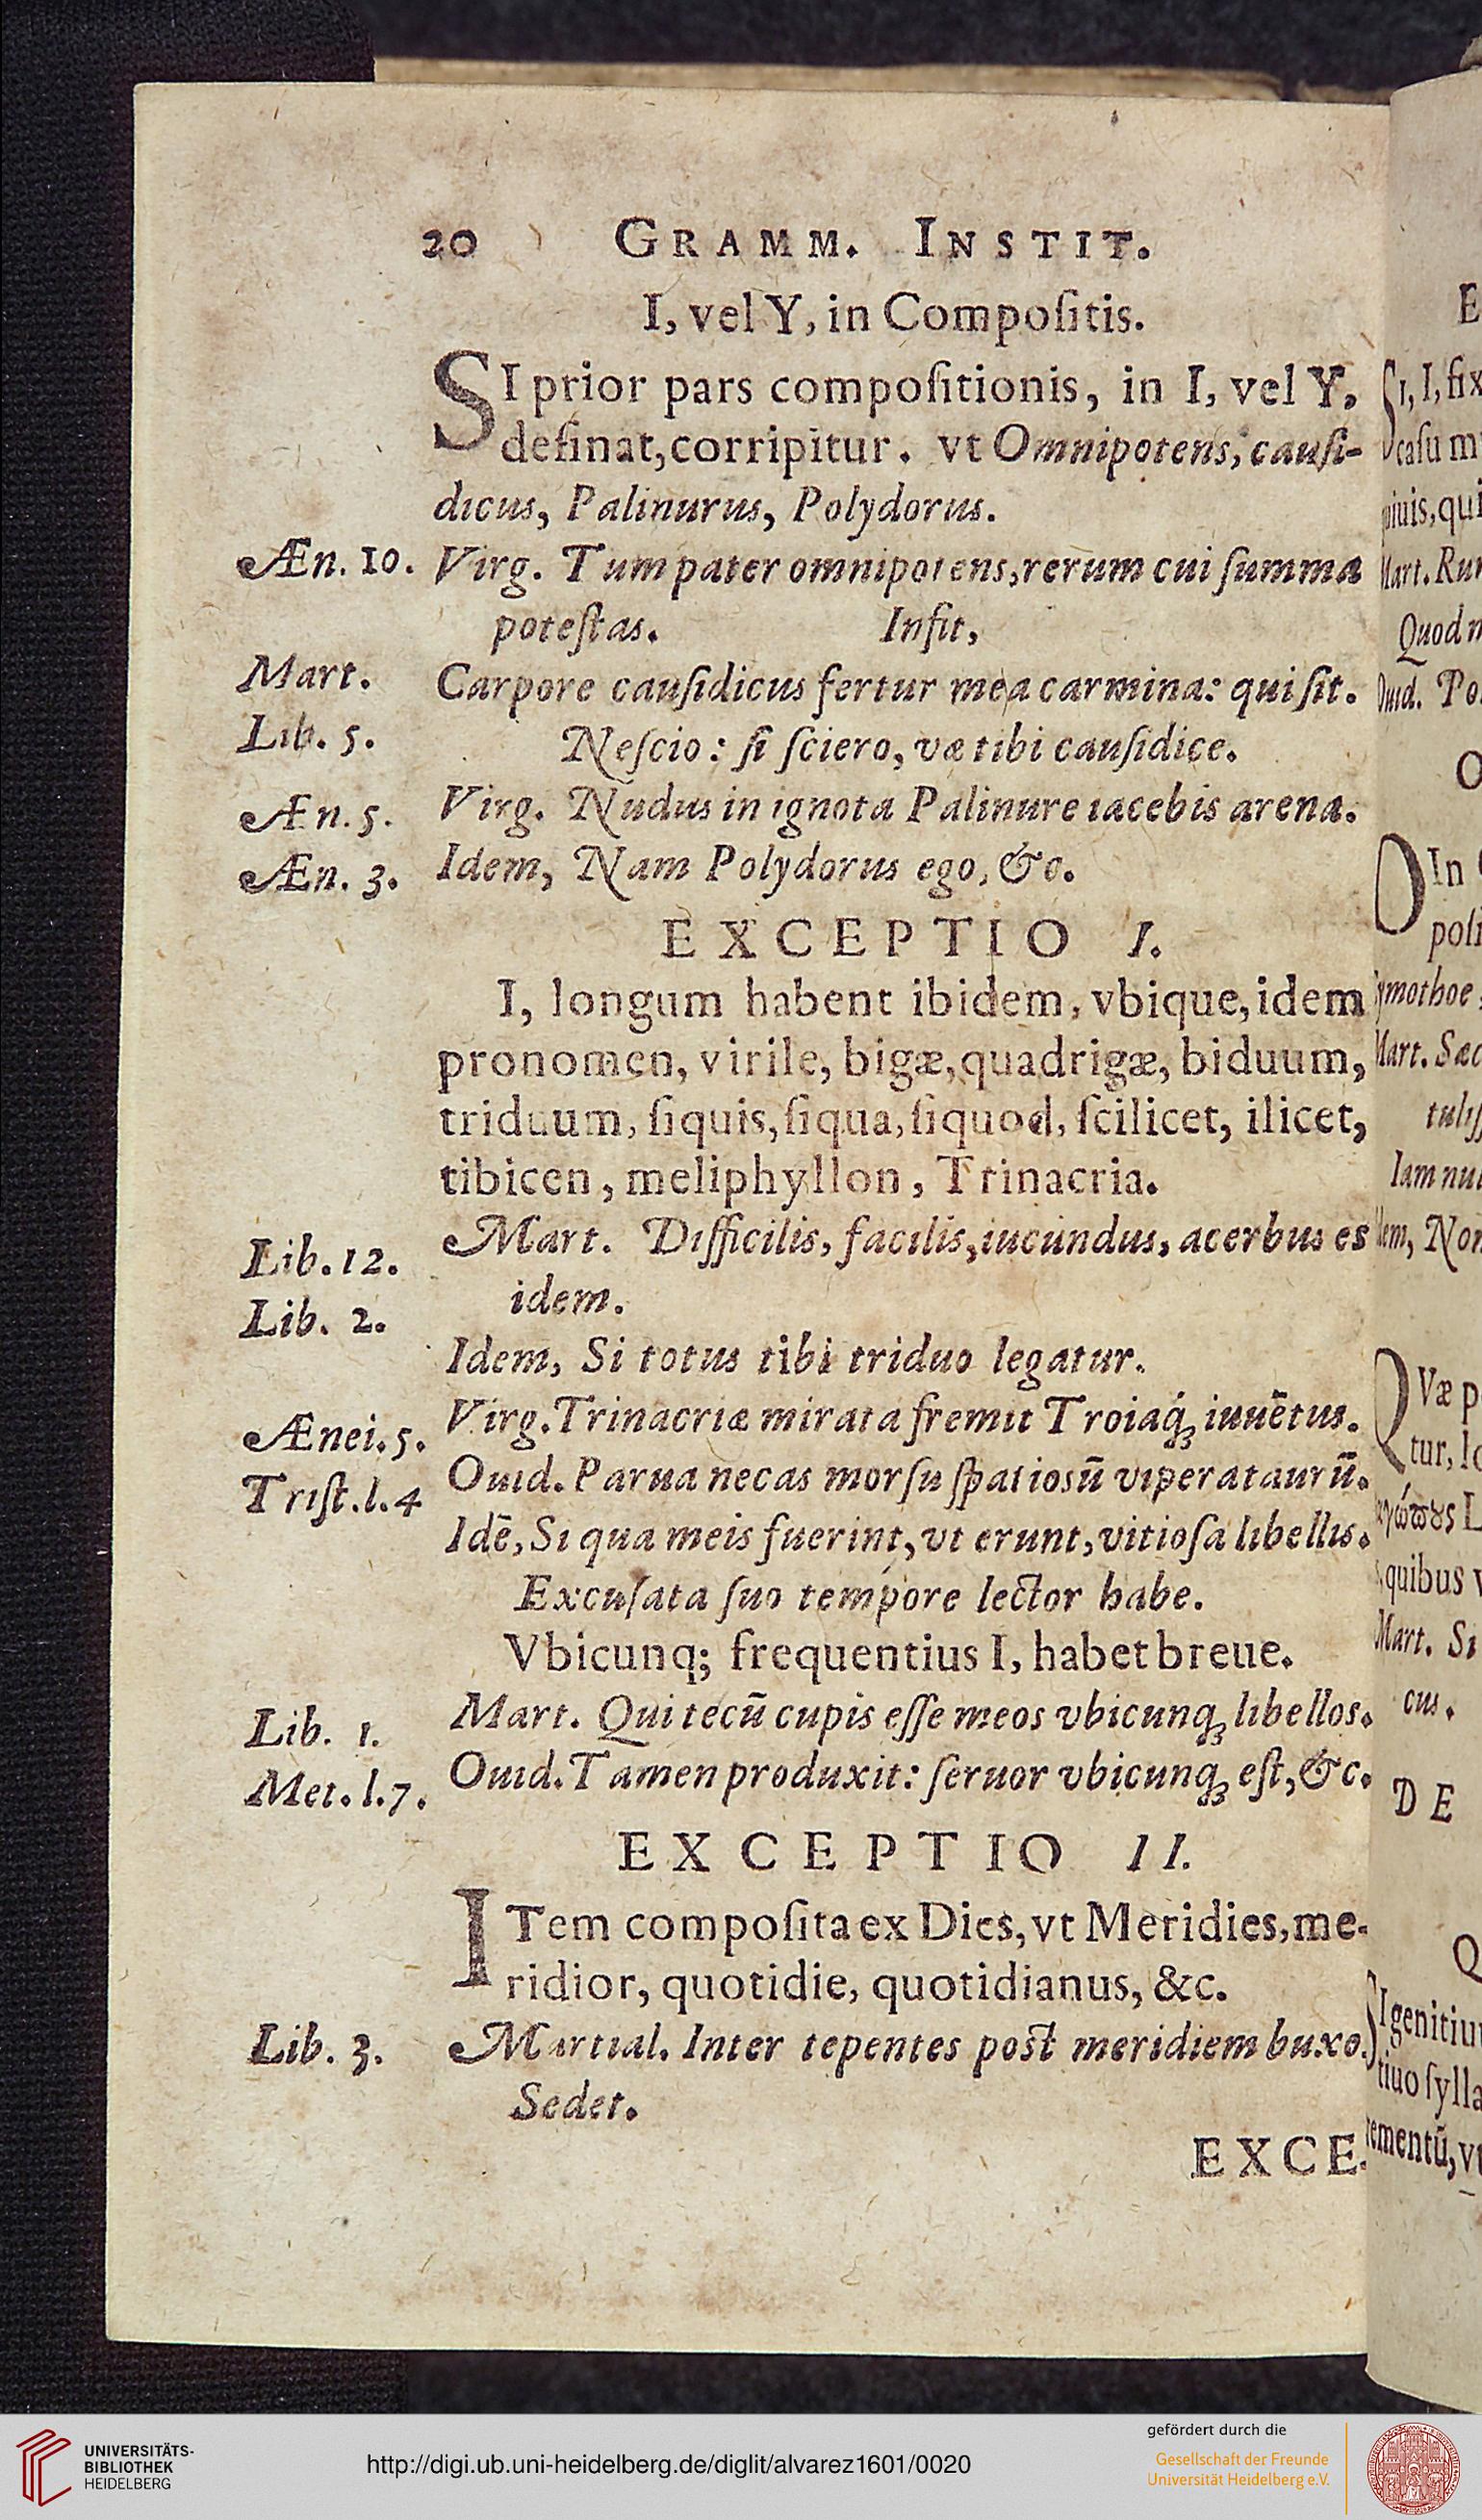 20 GRAMM. INSTIT.
I, vel Y, in Compoſitis.
SI prior pars compoſitionis, in I, vel Y,
deſinat, corripitur. vt Omnipotens, cauſi-
dicus, Palinurus, Polydorus.
Æn. 10. Virg. Tum pater omnipotens, rerum cui ſumma
poteſtas. Infit,
Mart. Carpere cauſidicus fertur mea carmina: qui ſit.
Lib. 5. Neſcio: ſi ſciero, væ tibi cauſidice.
Æn. 5. Virg. Nudus in ignota Palinure iacebis arena.
Æn. 3. Idem, Nam Polydorus ego, &c.
EXCEPTIO I.
I, longum habent ibidem, vbique, idem
pronomen, virile, bigæ, quadrigæ, biduum,
triduum, ſiquis, ſiqua, ſiquod, ſcilicet, ilicet,
tibicen, meliphyllon, Trinacria.
Lib. 12. Mart. Difficilis, facilis, iucundus, acerbus es
idem.
Lib. 2. Idem, Si totus tibi triduo legatur.
Ænei. 5. Virg. Trinacriæ mirata fremit Troiaq́; iuuẽtus.
Triſt. l. 4 Ouid. Parua necas morſu ſpatiosũ vipera taurũ.
Idẽ, Si qua meis fuerint, vt erunt, vitioſa libellis.
Excuſata ſuo tempore lector habe.
Vbicunq; frequentius I, habet breue.
Lib. 1. Mart. Qui tecũ cupis eſſe meos vbicunq; libellos.
Met. l. 7. Ouid. Tamen produxit: ſeruor vbicunq; eſt, &c.
EXCEPTIO II.
ITem compoſita ex Dies, vt Meridies, me-
ridior, quotidie, quotidianus, &c.
Lib. 3. Martial. Inter tepentes poſt meridiem buxo.
Sedet.
EXCE-
UNIVERSITÄTS-
BIBLIOTHEK
HEIDELBERG
http://digi.ub.uni-heidelberg.de/diglit/alvarez1601/0020
gefördert durch die
Gesellschaft der Freunde
Universität Heidelberg e.V.